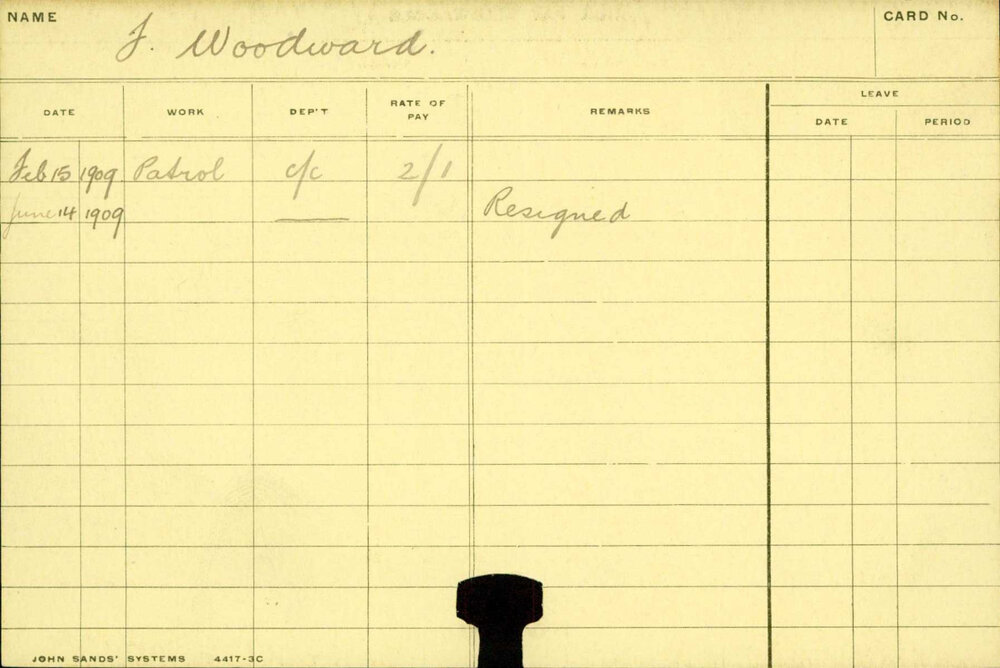 NAME
CARD No.
F. Woodward.
LEAVE
DATE WORK DEP'T RATE OF PAY REMARKS DATE PERIOD
Feb 15 1909 Patrol c/c 2/1
June 14 1909 Resigned
JOHN SANDS' SYSTEMS 4417-3C